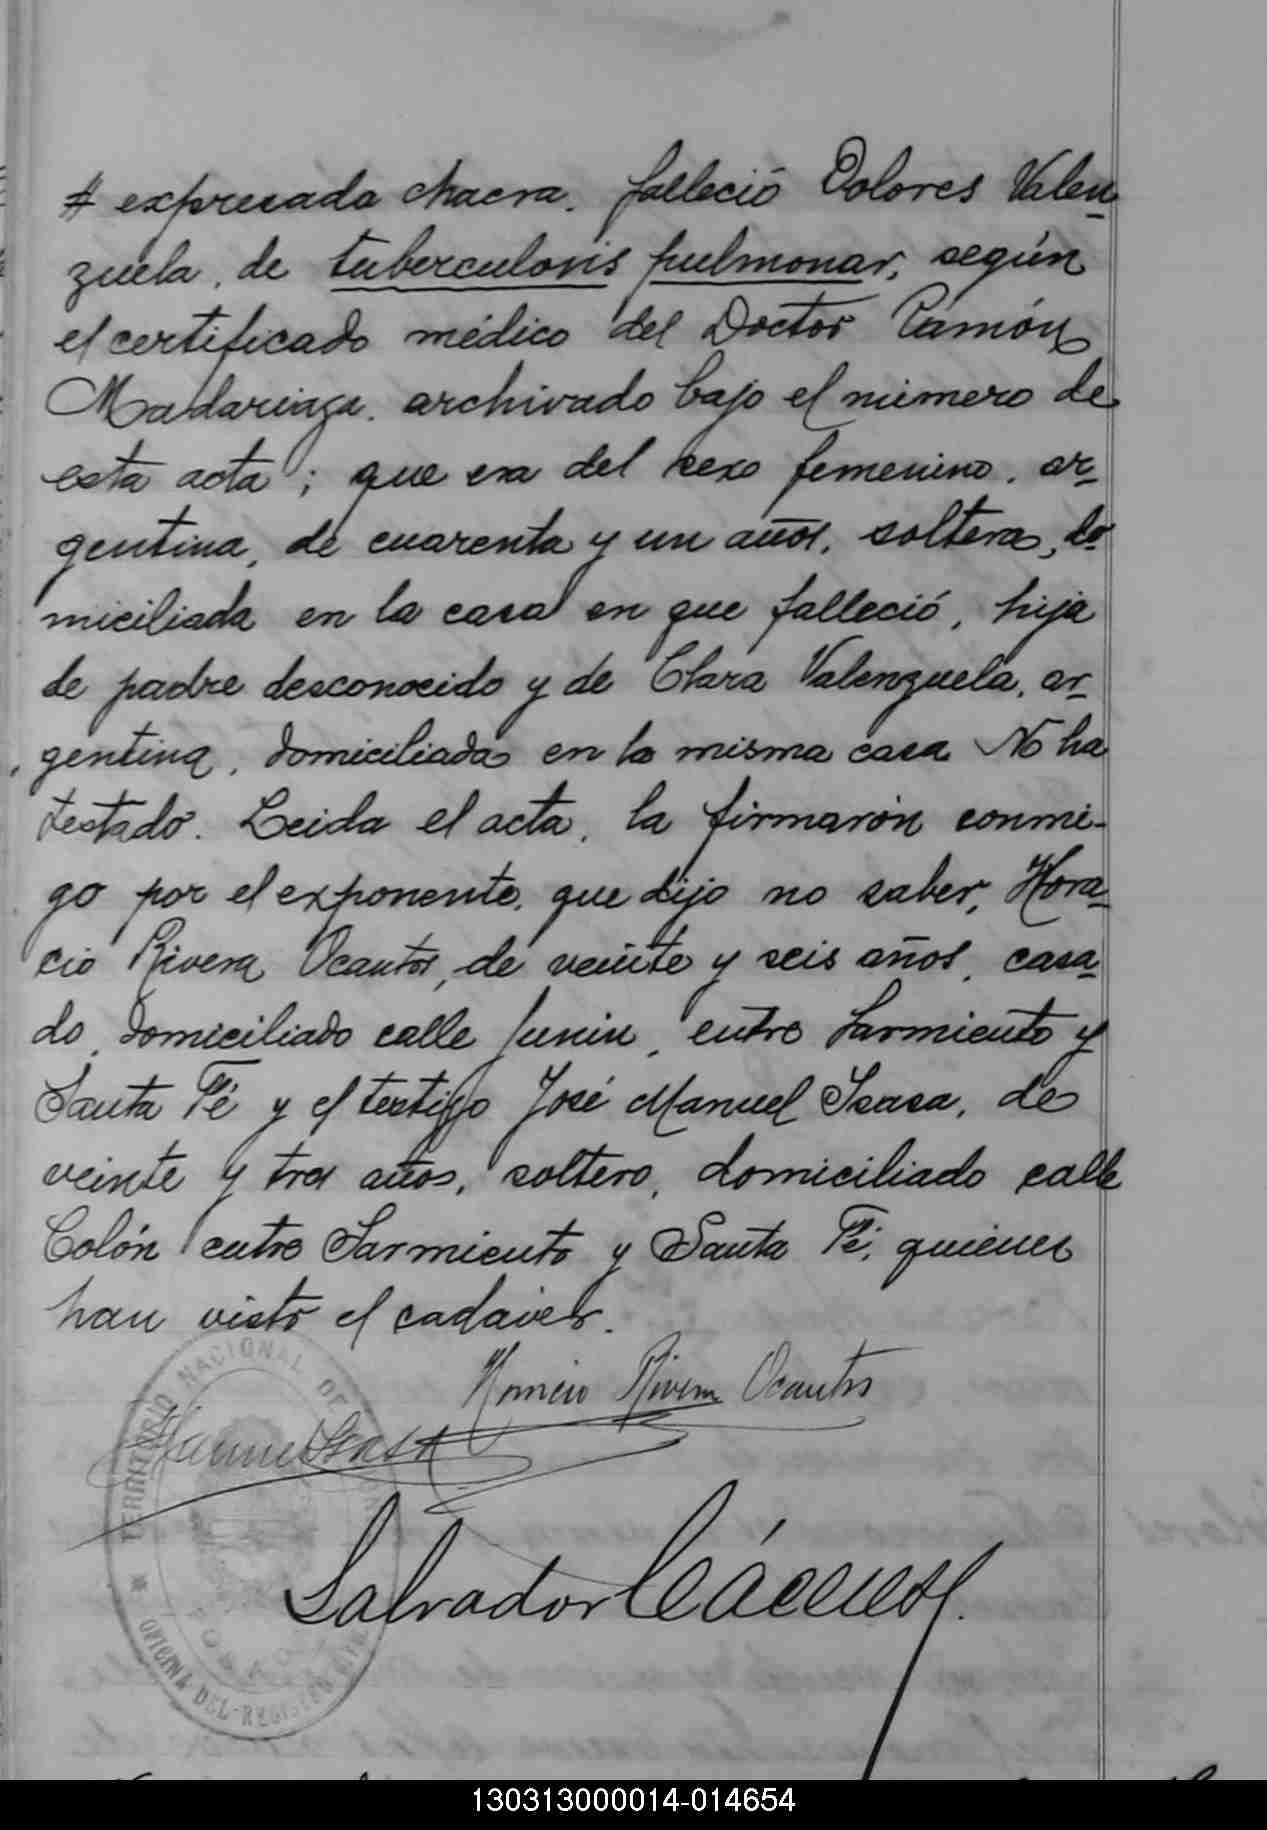 # expresada chacra. falleció Dolores Valen-
zuela, de tuberculosis pulmonar, según
el certificado médico del Doctor Ramón
Madariaga. archivado bajo el número de
esta acta; que era del sexo femenino. ar-
gentina, de cuarenta y un años, soltera, do-
miciliada en la casa en que falleció, hija
de padre desconocido y de Clara Valenzuela, ar-
gentina, domiciliada en la misma casa No ha
testado. Leida el acta, la firmarón conmi-
go por el exponente, que dijo no saber, Hora-
cio Rivera Ocantos, de veinte y seis años, casa-
do, domiciliado calle Junin, entre Sarmiento y
Santa Fé y el testigo José Manuel Isasa, de
veinte y tres años, soltero, domiciliado calle
Colón entre Sarmiento y Santa Fé, quienes
han visto el cadaver.
Horacio Rivera Ocantos
Manuel Isasa
Salvador Cáceres
TERRITORIO NACIONAL DE
OFICINA DEL REGISTRO CIVIL
130313000014-014654